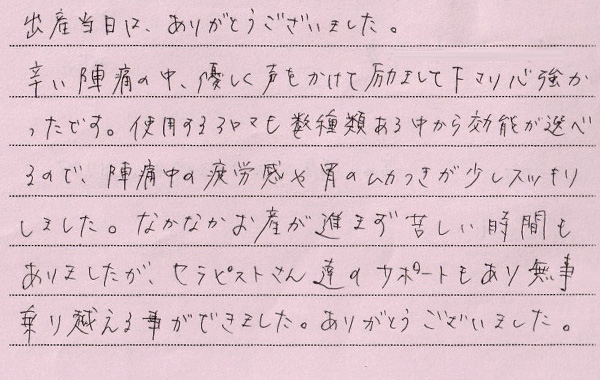 出産当日は、ありがとうございました。
辛い陣痛の中、優しく声をかけて励まして下さり心強か
ったです。使用するアロマも数種類ある中から効能が選べ
るので、陣痛中の疲労感や胃のムカつきが少しスッキリ
しました。なかなかお産が進まず苦しい時間も
ありましたが、セラピストさん達のサポートもあり無事
乗り越える事ができました。ありがとうございました。